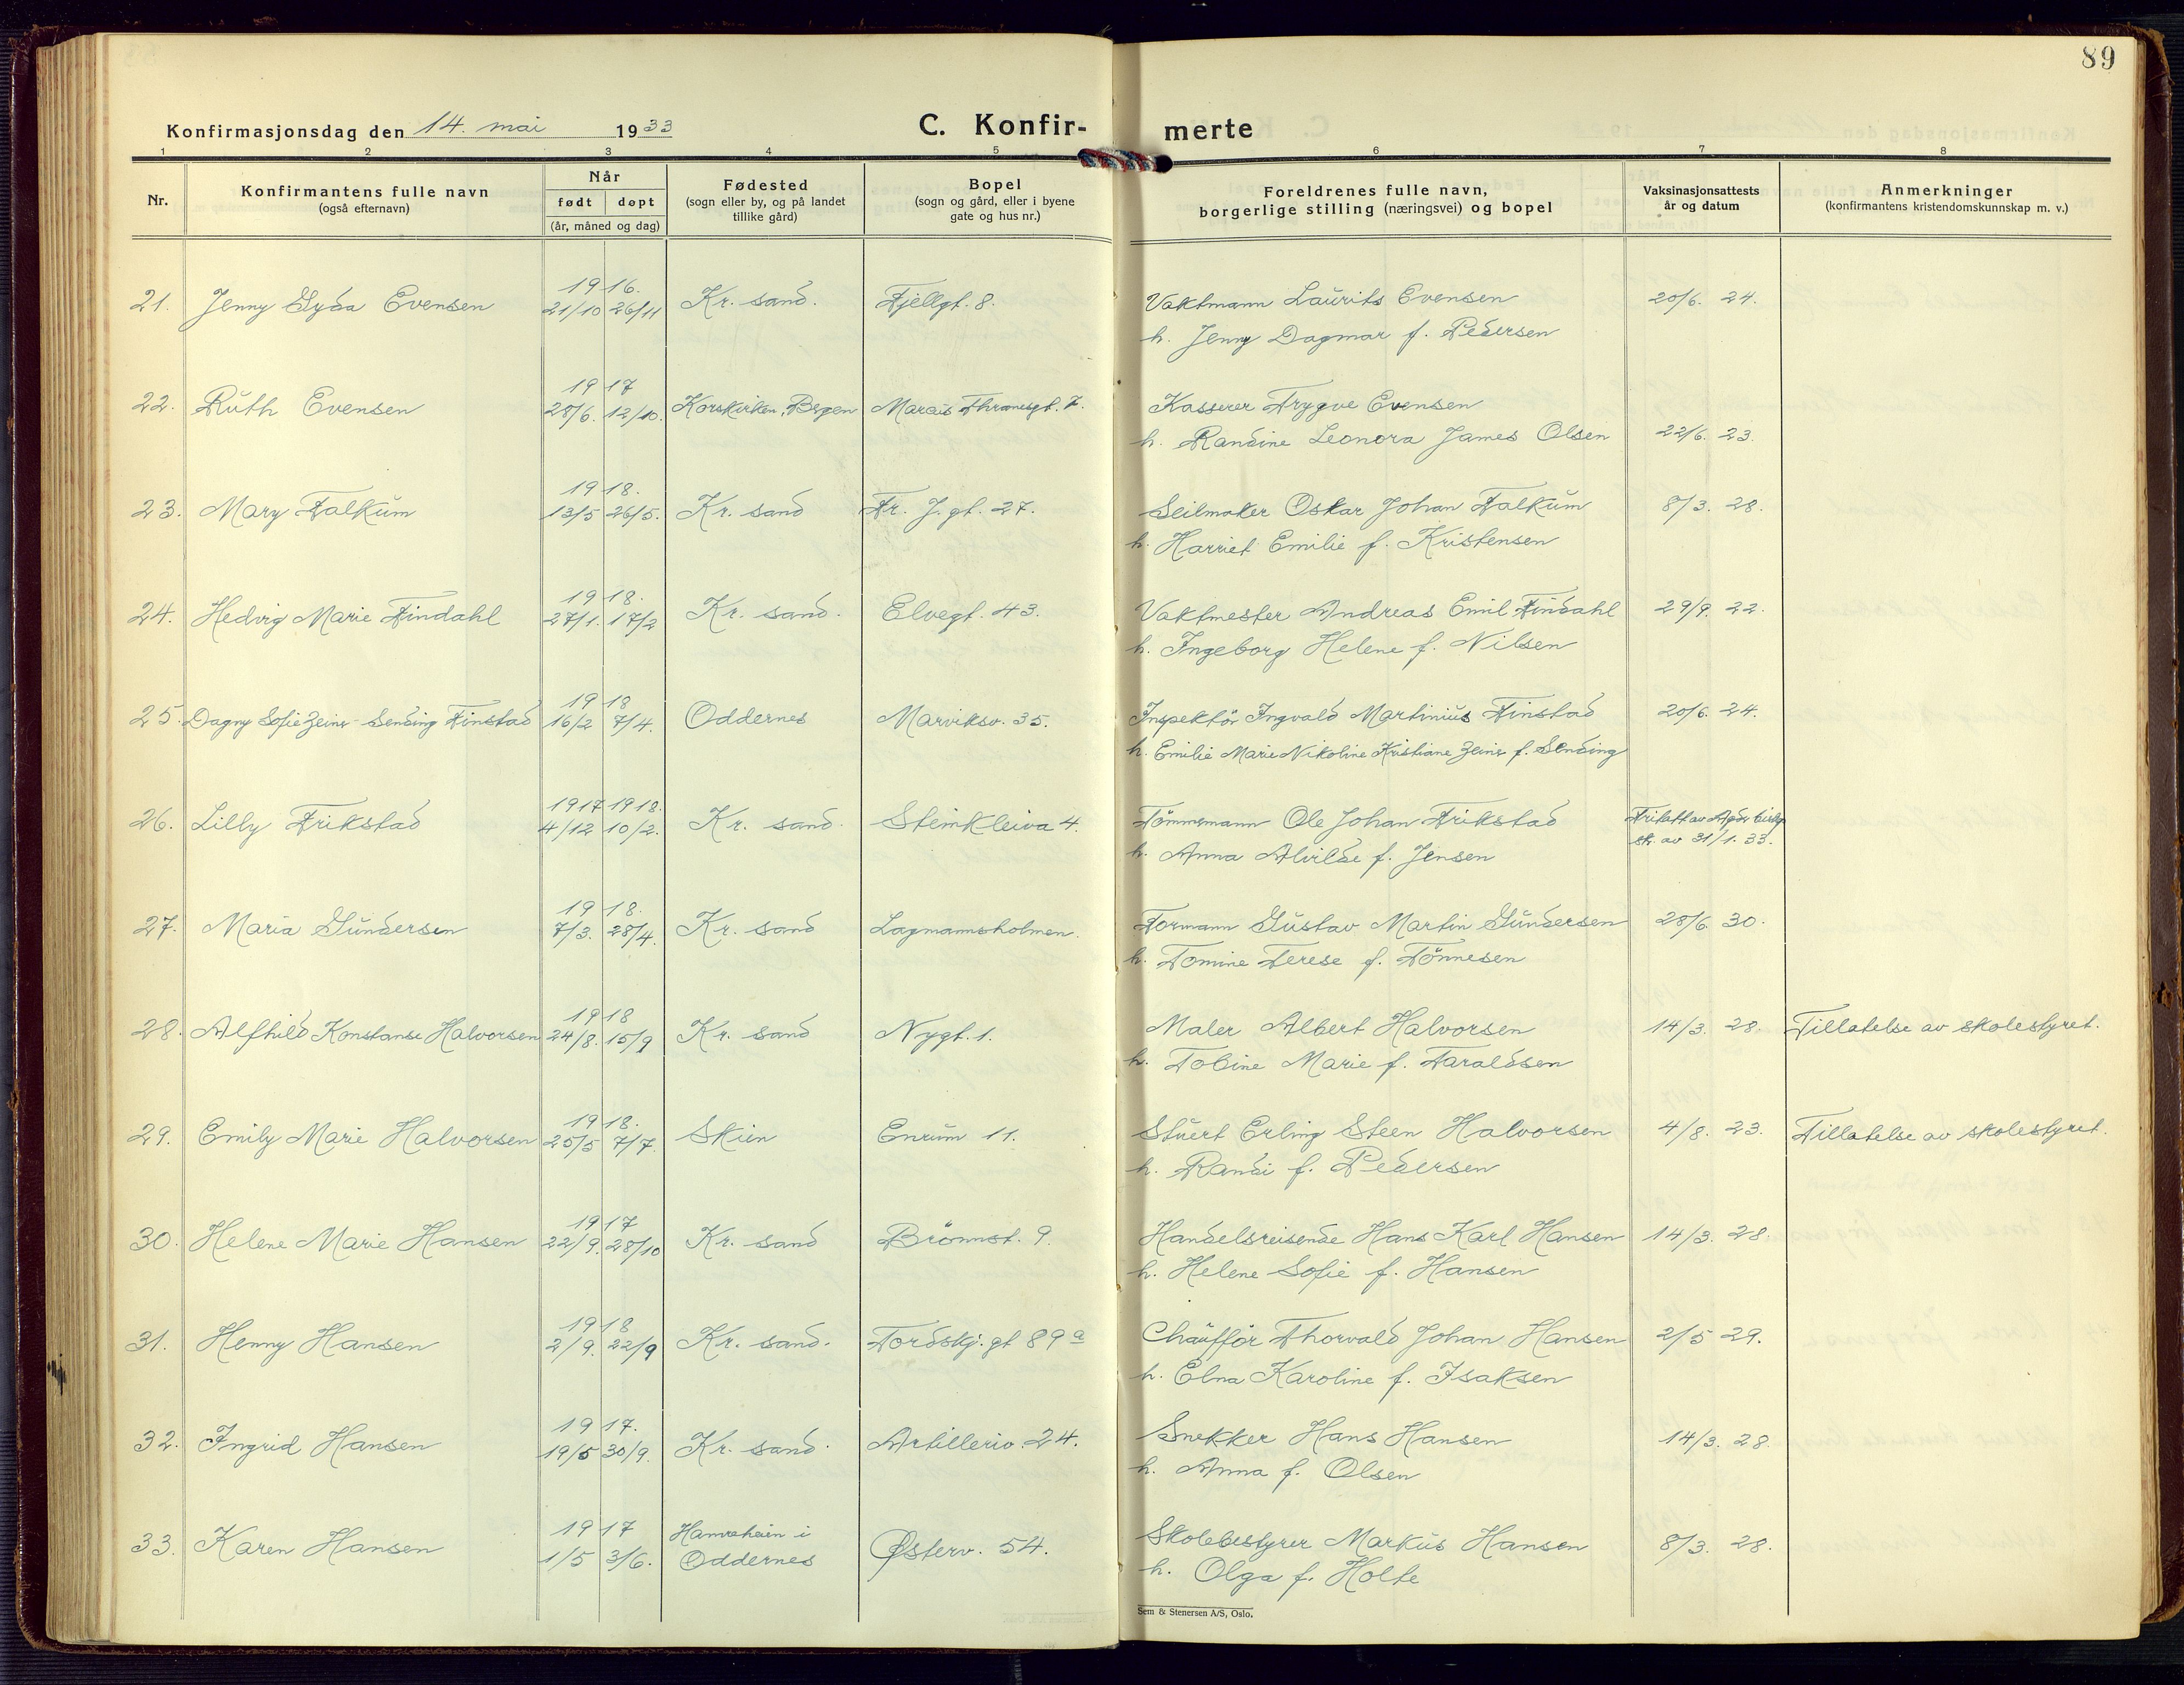 89
Konfirmasjonsdag den 14. mai 1933
C. Konfir-merte
1 2 3 4 5 6 7 8
Nr.
Konfirmantens fulle navn
(også efternavn)
Når
født døpt
(år, måned og dag)
Fødested
(sogn eller by, og på landet
tillike gård)
Bopel
(sogn og gård, eller i byene
gate og hus nr.)
Foreldrenes fulle navn,
borgerlige stilling (næringsvei) og bopel
Vaksinasjonsattests
år og datum
Anmerkninger
(konfirmantens kristendomskunnskap m. v.)
19 16.
21. Jenny Gyda Evensen 21/10 26/11 Kr. sand. Fjellgt. 8. Vaktmann Laurits Evensen 20/6. 24.
h. Jenny Dagmar f. Pedersen
19 17
22. Ruth Evensen 28/6. 12/10. Korskirken, Bergen Marcus Thranesgt. 7. Kasserer Trygve Evensen
h. Randine Leonora James Olsen 22/6. 23.
19 18.
23. Mary Falkum 13/5 26/5. Kr. sand Fr. J. gt. 27. Seilmaker Oskar Johan Falkum 8/3. 28.
h. Harriet Emilie f. Kristensen
19 18.
24. Hedvig Marie Findahl 27/1. 17/2 Kr. sand. Elvegt. 43. Vaktmester Andreas Emil Findahl 29/9. 22.
h. Ingeborg Helene f. Nilsen
19 18
25. Dagny Sofie Zeiner-Sending Finstad 16/2 7/4. Oddernes Marviksv. 35. Inspektör Ingvald Martinius Finstad 20/6. 24.
h. Emilie Marie Nikoline Kristiane Zeiner f. Sending
1917 1918.
26. Lilly Frikstad 4/12 10/2. Kr. sand. Steinkleiva 4. Tömmermann Ole Johan Frikstad Fritatt av Agder bisp
h. Anna Alvilde f. Jensen skr. av 31/1. 33.
19 18.
27. Maria Gundersen 7/3. 28/4. Kr. sand Lagmannsholmen. Formann Gustav Martin Gundersen 28/6. 30.
h. Tomine Terese f. Tönnesen
19 18
28. Alfhild Konstanse Halvorsen 24/8. 15/9 Kr. sand Nygt. 1. Maler Albert Halvorsen 14/3. 28. Tillatelse av skolestyret.
h. Tobine Marie f. Taraldsen
19 18.
29. Emily Marie Halvorsen 25/5 7/7. Skien Enrum 11. Stuert Erling Steen Halvorsen 4/8. 23. Tillatelse av skolestyret.
h. Randi f. Pedersen
19 17
30. Helene Marie Hansen 22/9. 28/10 Kr. sand Brönnst. 9. Handelsreisende Hans Karl Hansen 14/3. 28.
h. Helene Sofie f. Hansen
19 18
31. Henny Hansen 2/9. 22/9 Kr. sand. Tordskj. gt 89 a Chäufför Thorvald Johan Hansen 2/5 29.
h. Elna Karoline f. Isaksen
19 17.
32. Ingrid Hansen 19/5 30/9. Kr. sand. Artilleriv. 24. Snekker Hans Hansen 14/3. 28.
h. Anna f. Olsen
19 17 Hamreheien i
33. Karen Hansen 1/5 3/6. Oddernes Østerv. 54. Skolebestyrer Markus Hansen 8/3. 28.
h. Olga f. Holte
Sem & Stenersen A/S, Oslo.